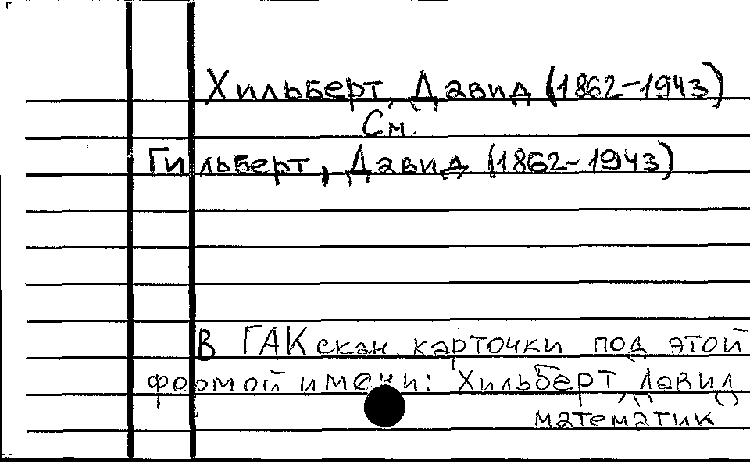 Хильберт, Давид (1862-1943)
См.
Гильберт, Давид (1862-1943)
В ГАК скан карточки под этой
формой имени: Хильберт, Давид
математик